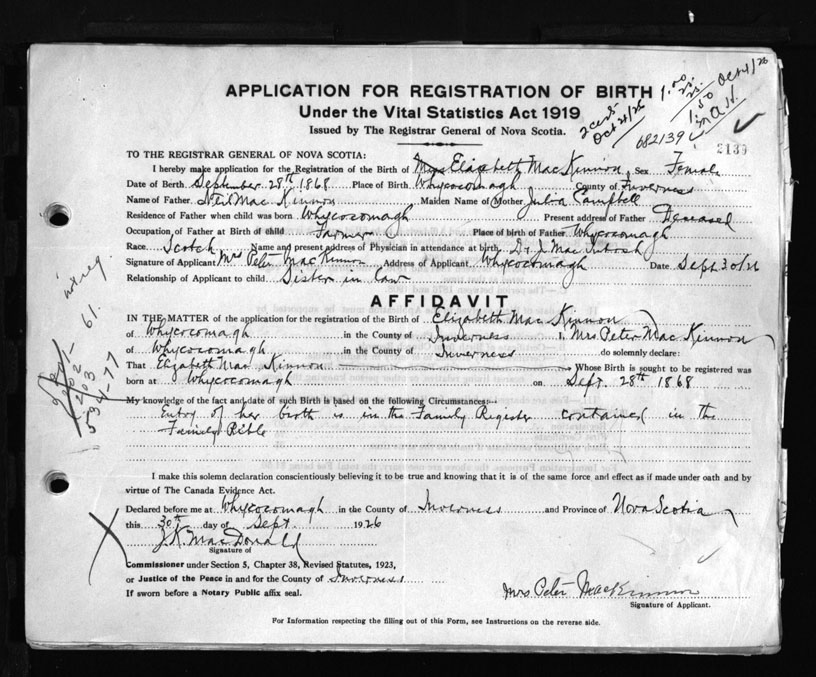 APPLICATION FOR REGISTRATION OF BIRTH
Under the Vital Statistics Act 1919
Issued by The Registrar General of Nova Scotia.
2 certs
Oct 4/26
1.00
25
25
1.50 Oct 4/26
682139
2139
TO THE REGISTRAR GENERAL OF NOVA SCOTIA:
I hereby make application for the Registration of the Birth of Elizabeth MacKinnon Sex Female
Date of Birth September 28th 1868 Place of Birth Whycocomagh County of Inverness
Name of Father Neil MacKinnon Maiden Name of Mother Julia Campbell
Residence of Father when child was born Whycocomagh Present address of Father Deceased
Occupation of Father at Birth of child Farmer Place of birth of Father Whycocomagh
Race Scotch Name and present address of Physician in attendance at birth Dr J MacIntosh
Signature of Applicant Mrs Peter MacKinnon Address of Applicant Whycocomagh Date Sept 30/26
Relationship of Applicant to child Sister in law
AFFIDAVIT
IN THE MATTER of the application for the registration of the Birth of Elizabeth MacKinnon
of Whycocomagh in the County of Inverness I, Mrs Peter MacKinnon
of Whycocomagh in the County of Inverness do solemnly declare:
That Elizabeth MacKinnon Whose Birth is sought to be registered was
born at Whycocomagh on Sept. 28th 1868
My knowledge of the fact and date of such Birth is based on the following Circumstances:—
Entry of her birth is in the Family Register contained in the
Family Bible
I make this solemn declaration conscientiously believing it to be true and knowing that it is of the same force and effect as if made under oath and by
virtue of The Canada Evidence Act.
Declared before me at Whycocomagh in the County of Inverness and Province of Nova Scotia
this 30th day of Sept. 1926
J.K. MacDonald
Signature of
Commissioner under Section 5, Chapter 38, Revised Statutes, 1923,
or Justice of the Peace in and for the County of Inverness
If sworn before a Notary Public affix seal.
Mrs Peter MacKinnon
Signature of Applicant.
For Information respecting the filling out of this Form, see Instructions on the reverse side.
not reg.
61.
2002
203
594-77